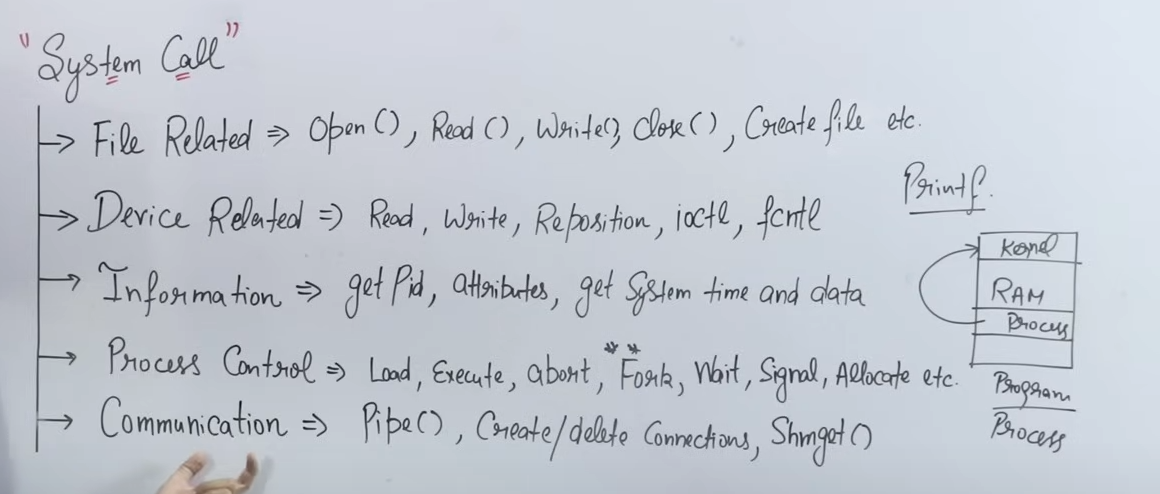 "System Call"
→ File Related ⇒ Open(), Read(), Write(), Close(), Create file etc.
→ Device Related ⇒ Read, Write, Reposition, ioctl, fcntl
→ Information ⇒ get Pid, attributes, get System time and data
→ Process Control ⇒ Load, Execute, abort, **Fork, Wait, Signal, Allocate etc.
→ Communication ⇒ Pipe(), Create/delete Connections, Shmget()
Printf.
Kernel
RAM
Process
Program
Process